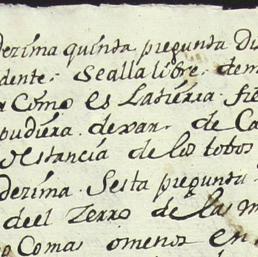 dezima quinta pregunta Di
dente. Sealla libre. dem
Como es Latierra. fie
pudiera. dexar. de Ca
Estancia de los tobos
dezima. Sesta pregunta.
deel Zerro de las m
Comas omenos en